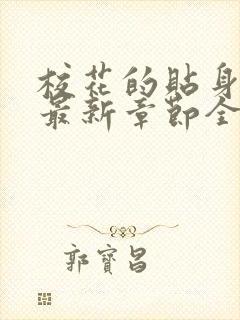 校花的貼身
最新章節全
郭寶昌